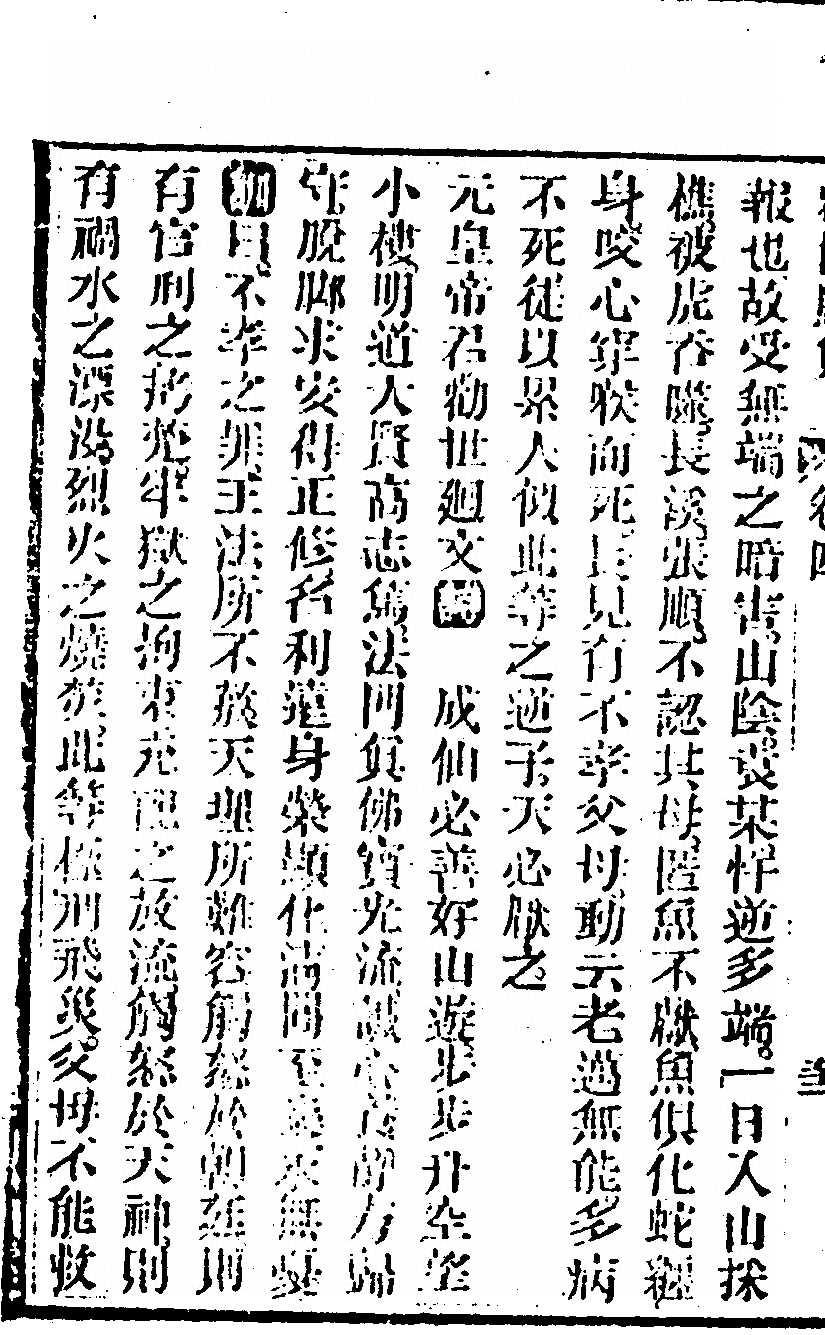 報也故受無端之暗害山陰裘某悖逆多端一日入山採
樵被虎吞噬長溪張順不認其母匿魚不獻魚俱化蛇纏
身咬心穿喉而死且見有不孝父母動云老邁無能多病
不死徒以累人似此等之逆子天必厭之
元皇帝君勸世廻文 成仙必善好山遊步步升空望
小樓明道大賢高志篤法門眞佛寶光流誠心方歸
守脫脚求安得正修名利蓮身榮顯化淸間至天無
曰不孝之罪王法所不赦天理所難容觸怒於朝廷則
有官刑之拷死牢獄之拘束充配之放流觸怒於天神則
有禍水之漂溺烈火之燒焚此等極刑飛災父母不能救